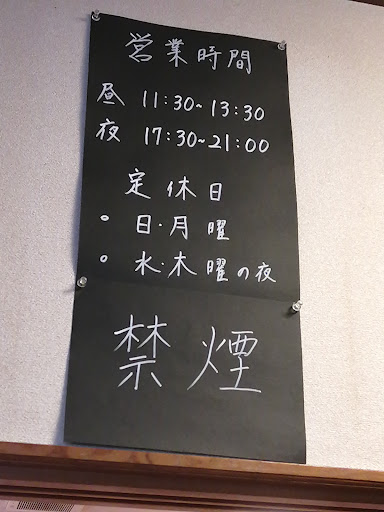 営業時間
昼 11:30~13:30
夜 17:30~21:00
定休日
° 日・月曜
° 水・木曜の夜
禁煙